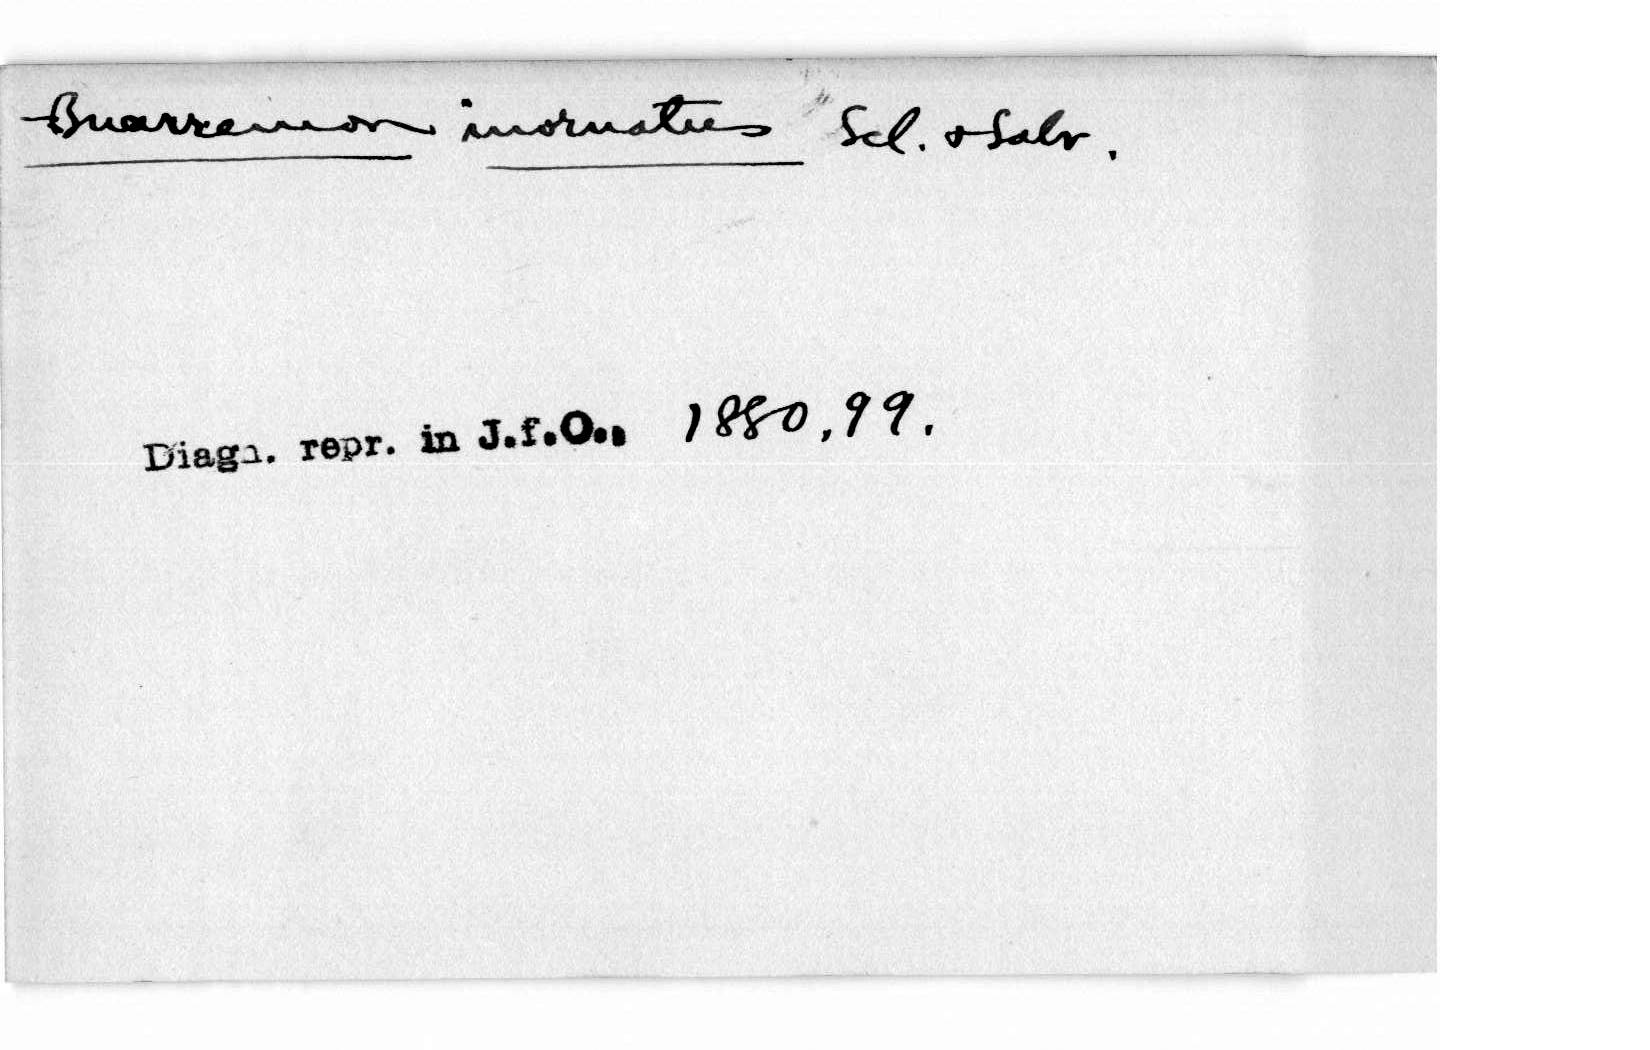 Buarremon inornatus Scl. & Salv.
Diagn. repr. in J.f.O., 1880, 99.